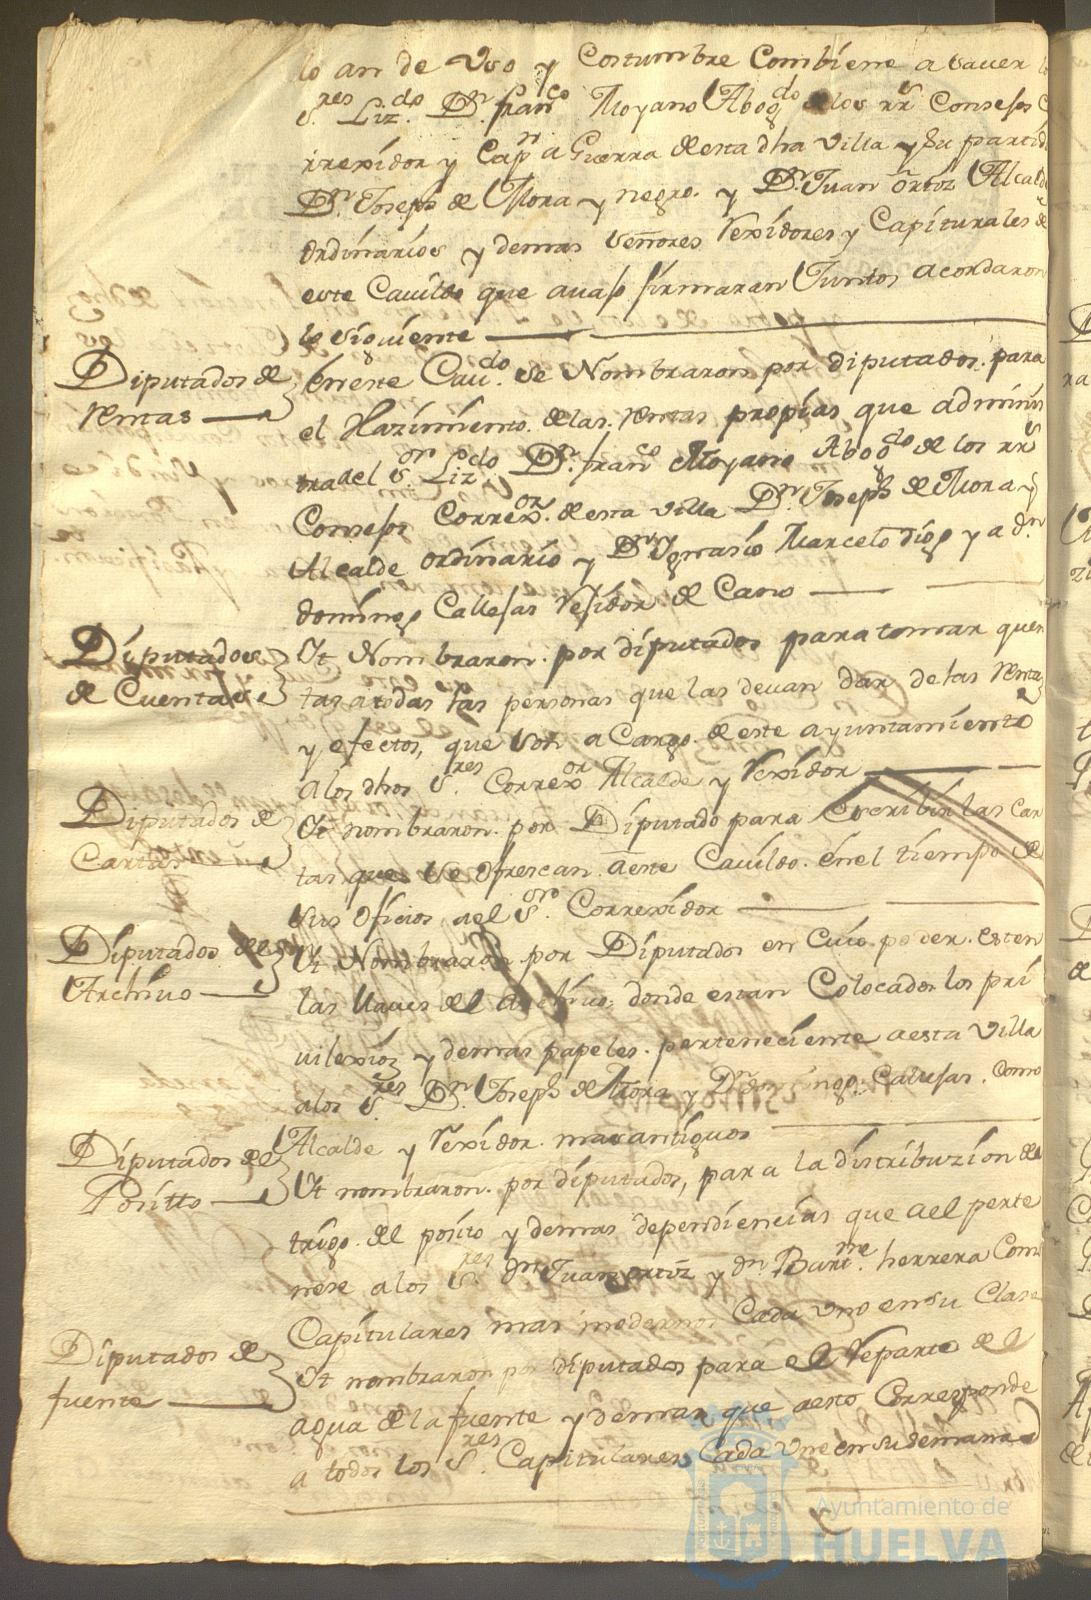 lo an de vso y Costumbre Combiene a sauer
s.res Liz.do Dn. fran.co Moyano Abog.do de los rr.s Consejos
rrexidor y Cap.n a Guerra de esta dha villa y su partid
Dn. Joseph de Mora y negro. y Dn. Juan ortiz Alcald
ordinarios y demas señores Rexidores y Capiturales de
este Cauildo que auajo firmaran Juntos acordaron
lo siguiente
Diputados de
Rentas
En este Cau.do se Nombraron por diputados. para
el Hazimiento. de las. rentas propias que adminis
tra del s.or Liz.do Dn. fran.co Moyano Abog.do de los rr.s
Consejos Correx.or de esta villa Dn. Joseph de Mora y
Alcalde ordinario y Dn. Ygnasio Marcelo y a dn.
domingo Callejas Rejidor de Cano
Diputados
de Cuentas
Yt Nombraron. por diputados para tomar quen
tas a todas las personas que las deuan dar de las Rentas
y efectos, que son a Cargo. de este ayuntamiento
a los dhos s.res Correx.or Alcalde y Rexidor
Diputados de
Cartas
Yt nombraron. por Diputado para escribir las Car
tas que se ofrescan a este Cauildo. en el tiempo de
sus oficios a el s.or Correxidor
Diputados del
Archivo
Yt Nombraron por Diputados en Cuio poder. esten
las llaues del Archivo. donde estan Colocados los pri
uilexios y demas papeles. perteneciente a esta villa
a los s.res Dn. Joseph de Mora y Dn. domingo. Callejas. como
Alcalde y Rexidor. mas antiguos
Diputados del
Positto
Yt nombraron. por diputados, para la distribuzion del
trigo. del posito y demas dependiencias que a el perte
nese a los s.res dn. Juan ortiz y dn. Bart.me herrera Com
Capitulares mas modernos Cada vno en su Clase
Diputados de
fuente
Yt nombraron por diputados para el Reparto de el
agua de la fuente y demas que a esto Corresponde
a todos los s.res Capitulares Cada vno en su semana
Ayuntamiento de
HUELVA